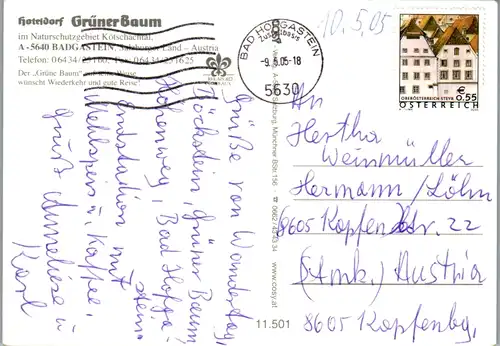 Hoteldorf Grüner Baum
im Naturschutzgebiet Kötschachtal,
A - 5640 BADGASTEIN, Salzburger Land – Austria
Telefon: 06434/25160, Fax 06434/251625
Der „Grüne Baum“
wünscht Wiederkehr und gute Reise!
BAD HOFGASTEIN
-9.5.05-18
5630
10.5.05
OBERÖSTERREICH-STEYR
€ 0,55
ÖSTERREICH
Grüße von Wandertag,
Böckstein, Grüner Baum,
Höhenweg, Bad Hofga-
stein
Endstation mit
Mehlspeis u. Kaffee.
Gruß Anneliese u
Karl
Salzburg, Münchner Bdstr. 156
www.cosy.at
11.501
An
Hertha
Weinmüller
Hermann/Löhn
8605 Kapfenbg Str. 22
(Stmk.) Austria
8605 Kapfenbg,